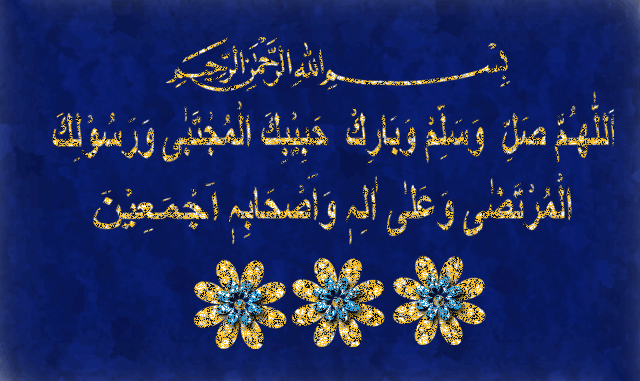 بِسْمِ اللهِ الرَّحْمٰنِ الرَّحِيْمِ
اَللّٰهُمَّ صَلِّ وَسَلِّمْ وَبَارِكْ حَبِيْبِكَ الْمُجْتَبٰى وَرَسُوْلِكَ
الْمُرْتَضٰى وَعَلٰى اٰلِهٖ وَاَصْحَابِهٖ اَجْمَعِيْنَ